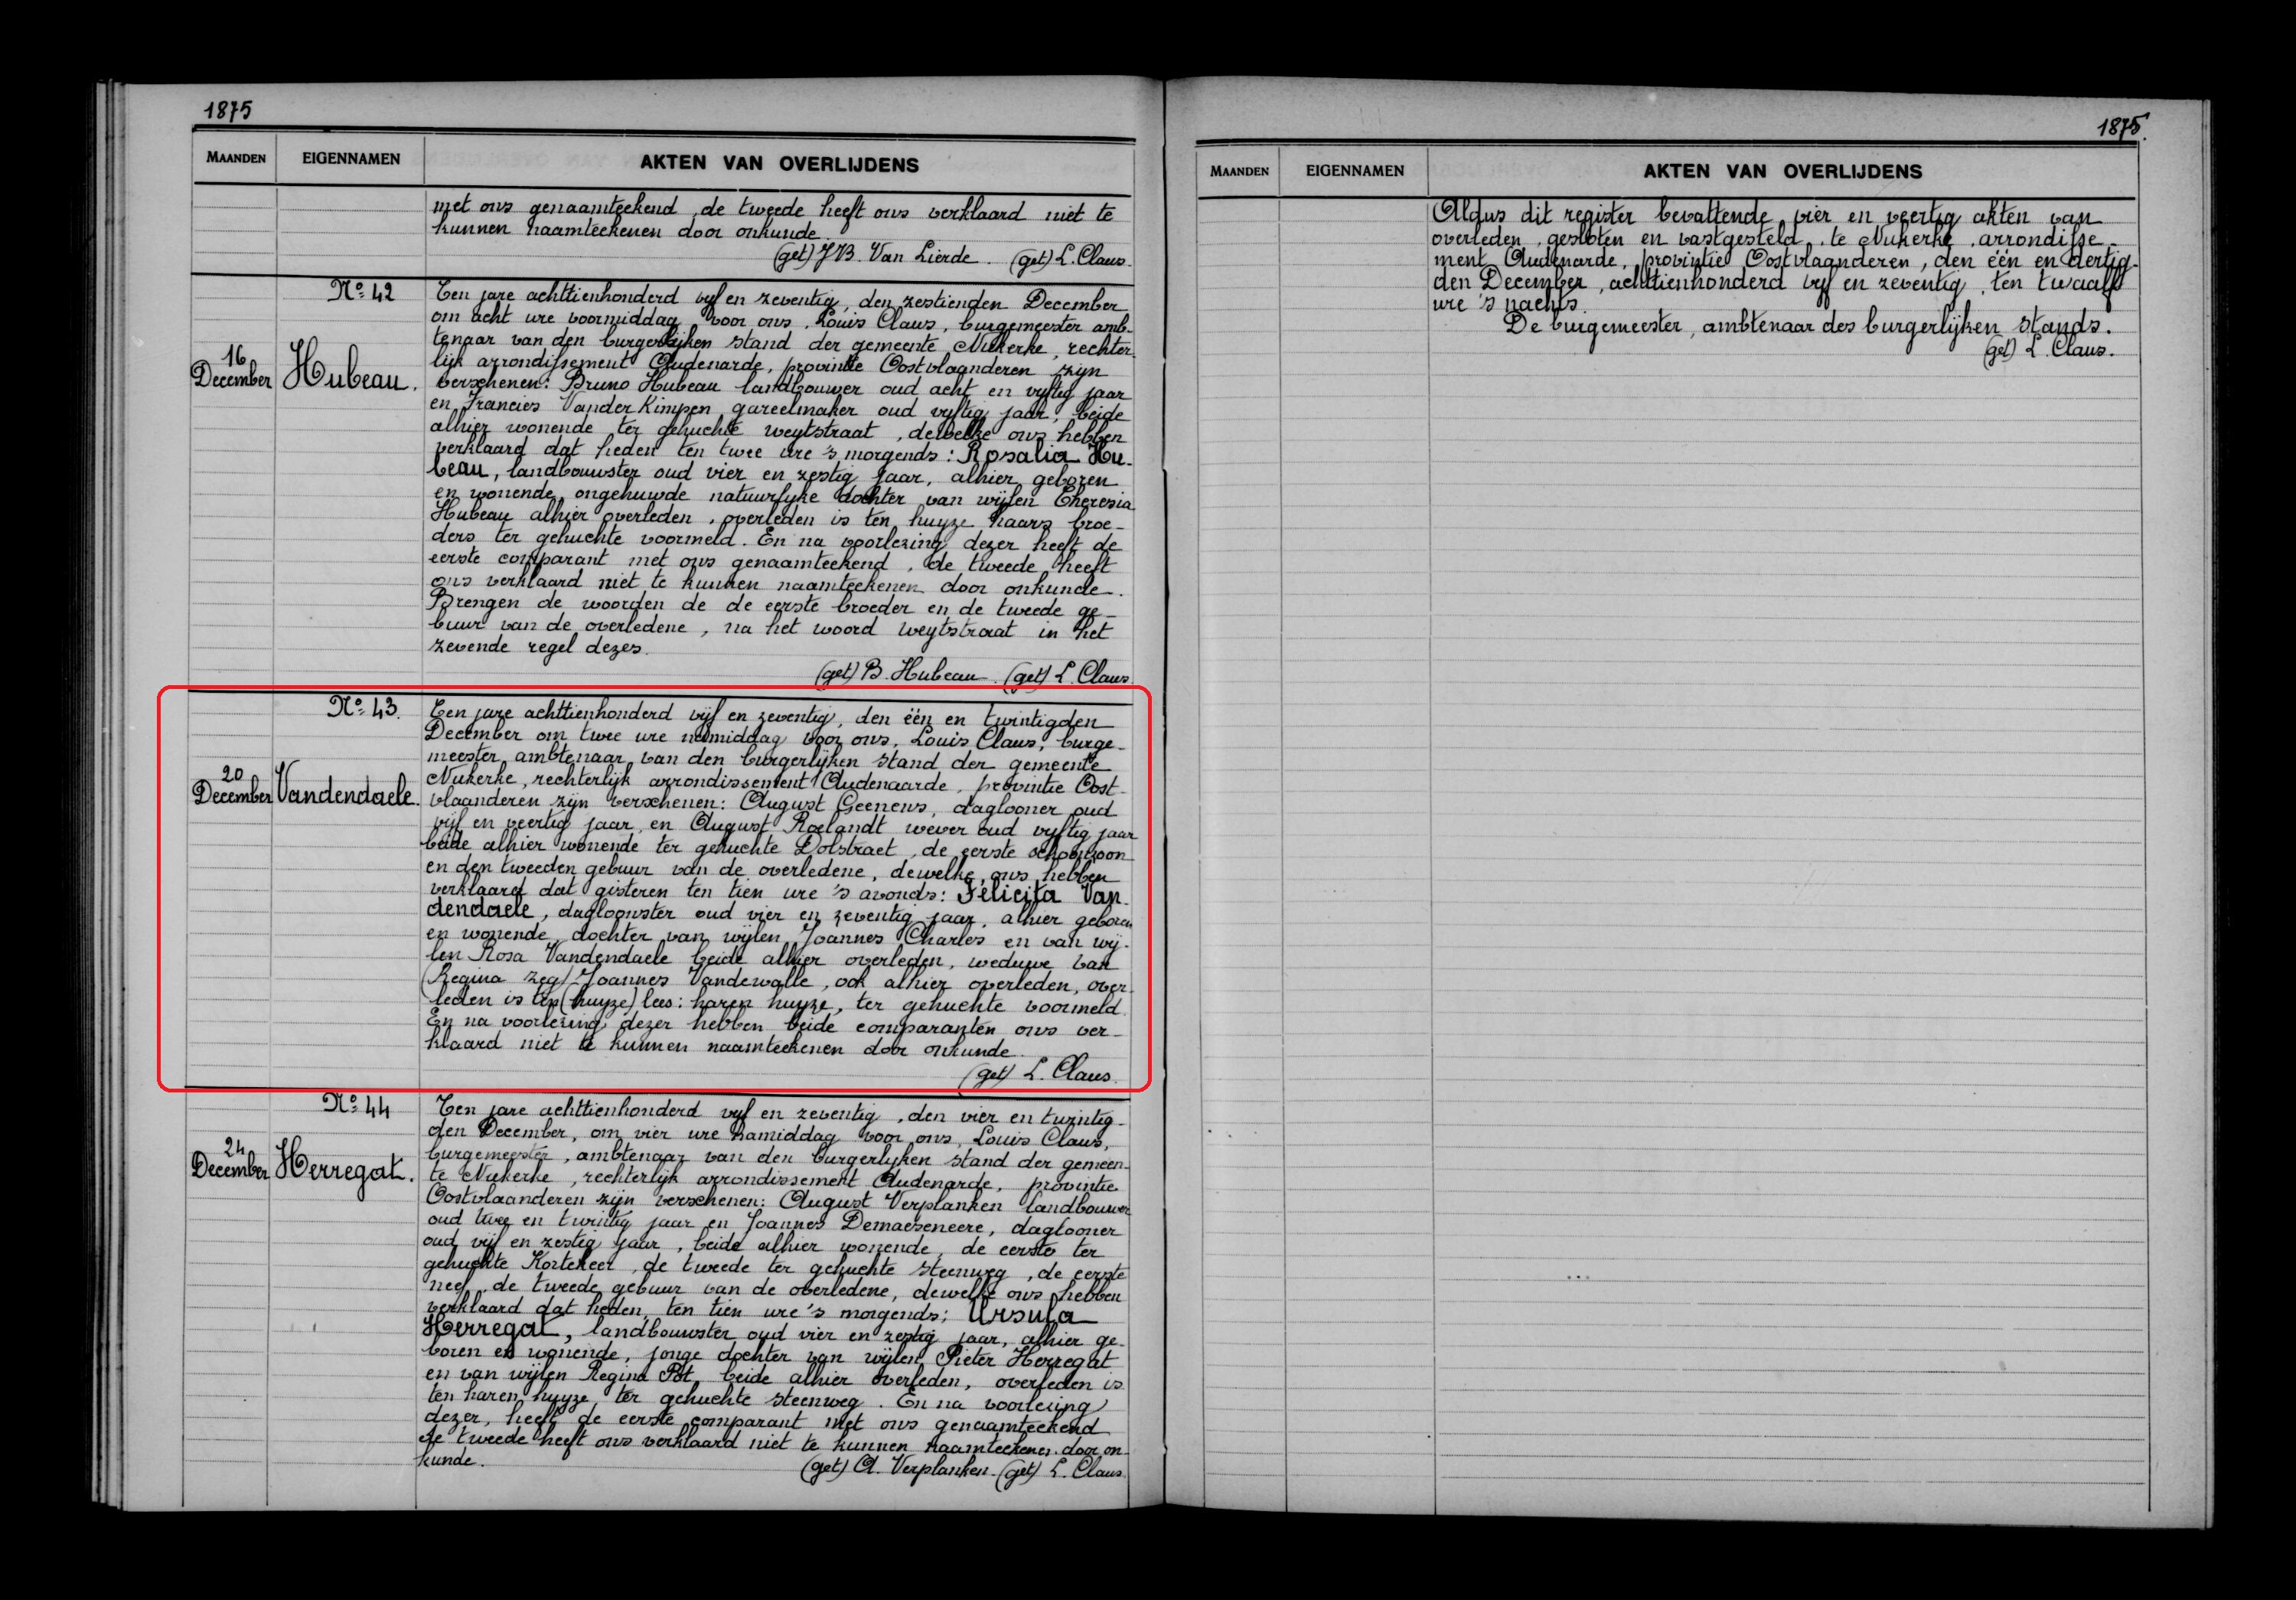 1875
MAANDEN EIGENNAMEN AKTEN VAN OVERLIJDENS
met ons genaamteekend, de tweede heeft ons verklaard niet te
kunnen naamteekenen door onkunde.
(get) J B. Van Lierde. (get) L. Claus.
Nº 42
16
December
Hubeau.
Ten jare achttienhonderd vijf en zeventig, den zestienden December
om acht ure voormiddag voor ons, Louis Claus, burgemeester amb-
tenaar van den burgerlijken stand der gemeente Nukerke, rechter-
lijk arrondissement Audenarde, provintie Oostvlaanderen zijn
verschenen: Bruno Hubeau landbouwer oud acht en vyftig jaar
en Francies VanderKimpen gareelmaker oud vyftig jaar, beide
alhier wonende ter gehuchte weytstraat, dewelke ons hebben
verklaard dat heden ten twee ure 's morgends: Rosalia Hu-
beau, landbouwster oud vier en zestig jaar, alhier geboren
en wonende, ongehuwde natuurlyke dochter van wijlen Theresia
Hubeau alhier overleden, overleden is ten huyze haars broe-
ders ter gehuchte voormeld. En na voorlezing dezer heeft de
eerste comparant met ons genaamteekend, de tweede heeft
ons verklaard niet te kunnen naamteekenen door onkunde.
Brengen de woorden de de eerste broeder en de tweede ge-
buur van de overledene, na het woord weytstraat in het
zevende regel dezes.
(get) B. Hubeau. (get) L. Claus.
Nº 43.
20
December
Vandendaele.
Ten jare achttienhonderd vijf en zeventig, den één en twintigden
December om twee ure namiddag voor ons, Louis Claus, burge-
meester ambtenaar van den burgerlijken stand der gemeente
Nukerke, rechterlijk arrondissement Audenaarde, provintie Oost-
vlaanderen zijn verschenen: August Geenens, daglooner oud
vijf en veertig jaar, en August Roelandt wever oud vyftig jaar
beide alhier wonende ter gehuchte Dolstraet, de eerste schoonzoon
en den tweeden gebuur van de overledene, dewelke ons hebben
verklaard dat gisteren ten tien ure 's avonds: Felicita Van-
dendaele, dagloonster oud vier en zeventig jaar, alhier geboren
en wonende, dochter van wijlen Joannes Charles en van wij-
len Rosa Vandendaele beide alhier overleden, weduwe van
(Regina zeg) Joannes Vandewalle, ook alhier overleden, over-
leden is ten (huyze) lees: haren huyze, ter gehuchte voormeld.
En na voorlezing dezer hebben beide comparanten ons ver-
klaard niet te kunnen naamteekenen door onkunde.
(get) L. Claus.
Nº 44
24
December
Herregat.
Ten jare achttienhonderd vyf en zeventig, den vier en twintig-
den December, om vier ure namiddag voor ons, Louis Claus,
burgemeester, ambtenaar van den burgerlyken stand der gemeen-
te Nukerke, rechterlijk arrondissement Audenarde, provintie
Oostvlaanderen zijn verschenen: August Verplanken landbouwer
oud twee en twintig jaar en Joannes Demaeseneere, daglooner
oud vijf en zestig jaar, beide alhier wonende, de eerste ter
gehuchte Kortekeer, de tweede ter gehuchte steenweg, de eerste
neef, de tweede gebuur van de overledene, dewelke ons hebben
verklaard dat heden, ten tien ure 's morgends; Ursula
Herregat, landbouwster oud vier en zestig jaar, alhier ge-
boren en wonende, jonge dochter van wijlen Pieter Herregat
en van wijlen Regina Pot, beide alhier overleden, overleden is
ten haren huyze ter gehuchte steenweg. En na voorlezing
dezer, heeft de eerste comparant met ons genaamteekend
de tweede heeft ons verklaard niet te kunnen naamteekenen door on-
kunde.
(get) A. Verplanken. (get) L. Claus
1875.
MAANDEN EIGENNAMEN AKTEN VAN OVERLIJDENS
Aldus dit register bevattende vier en veertig akten van
overleden, gesloten en vastgesteld, te Nukerke, arrondisse-
ment Audenarde, provintie Oostvlaanderen, den één en dertig-
den December, achttienhonderd vyf en zeventig, ten twaalf
ure 's nachts.
De burgemeester, ambtenaar des burgerlijken stands.
(get) L. Claus.